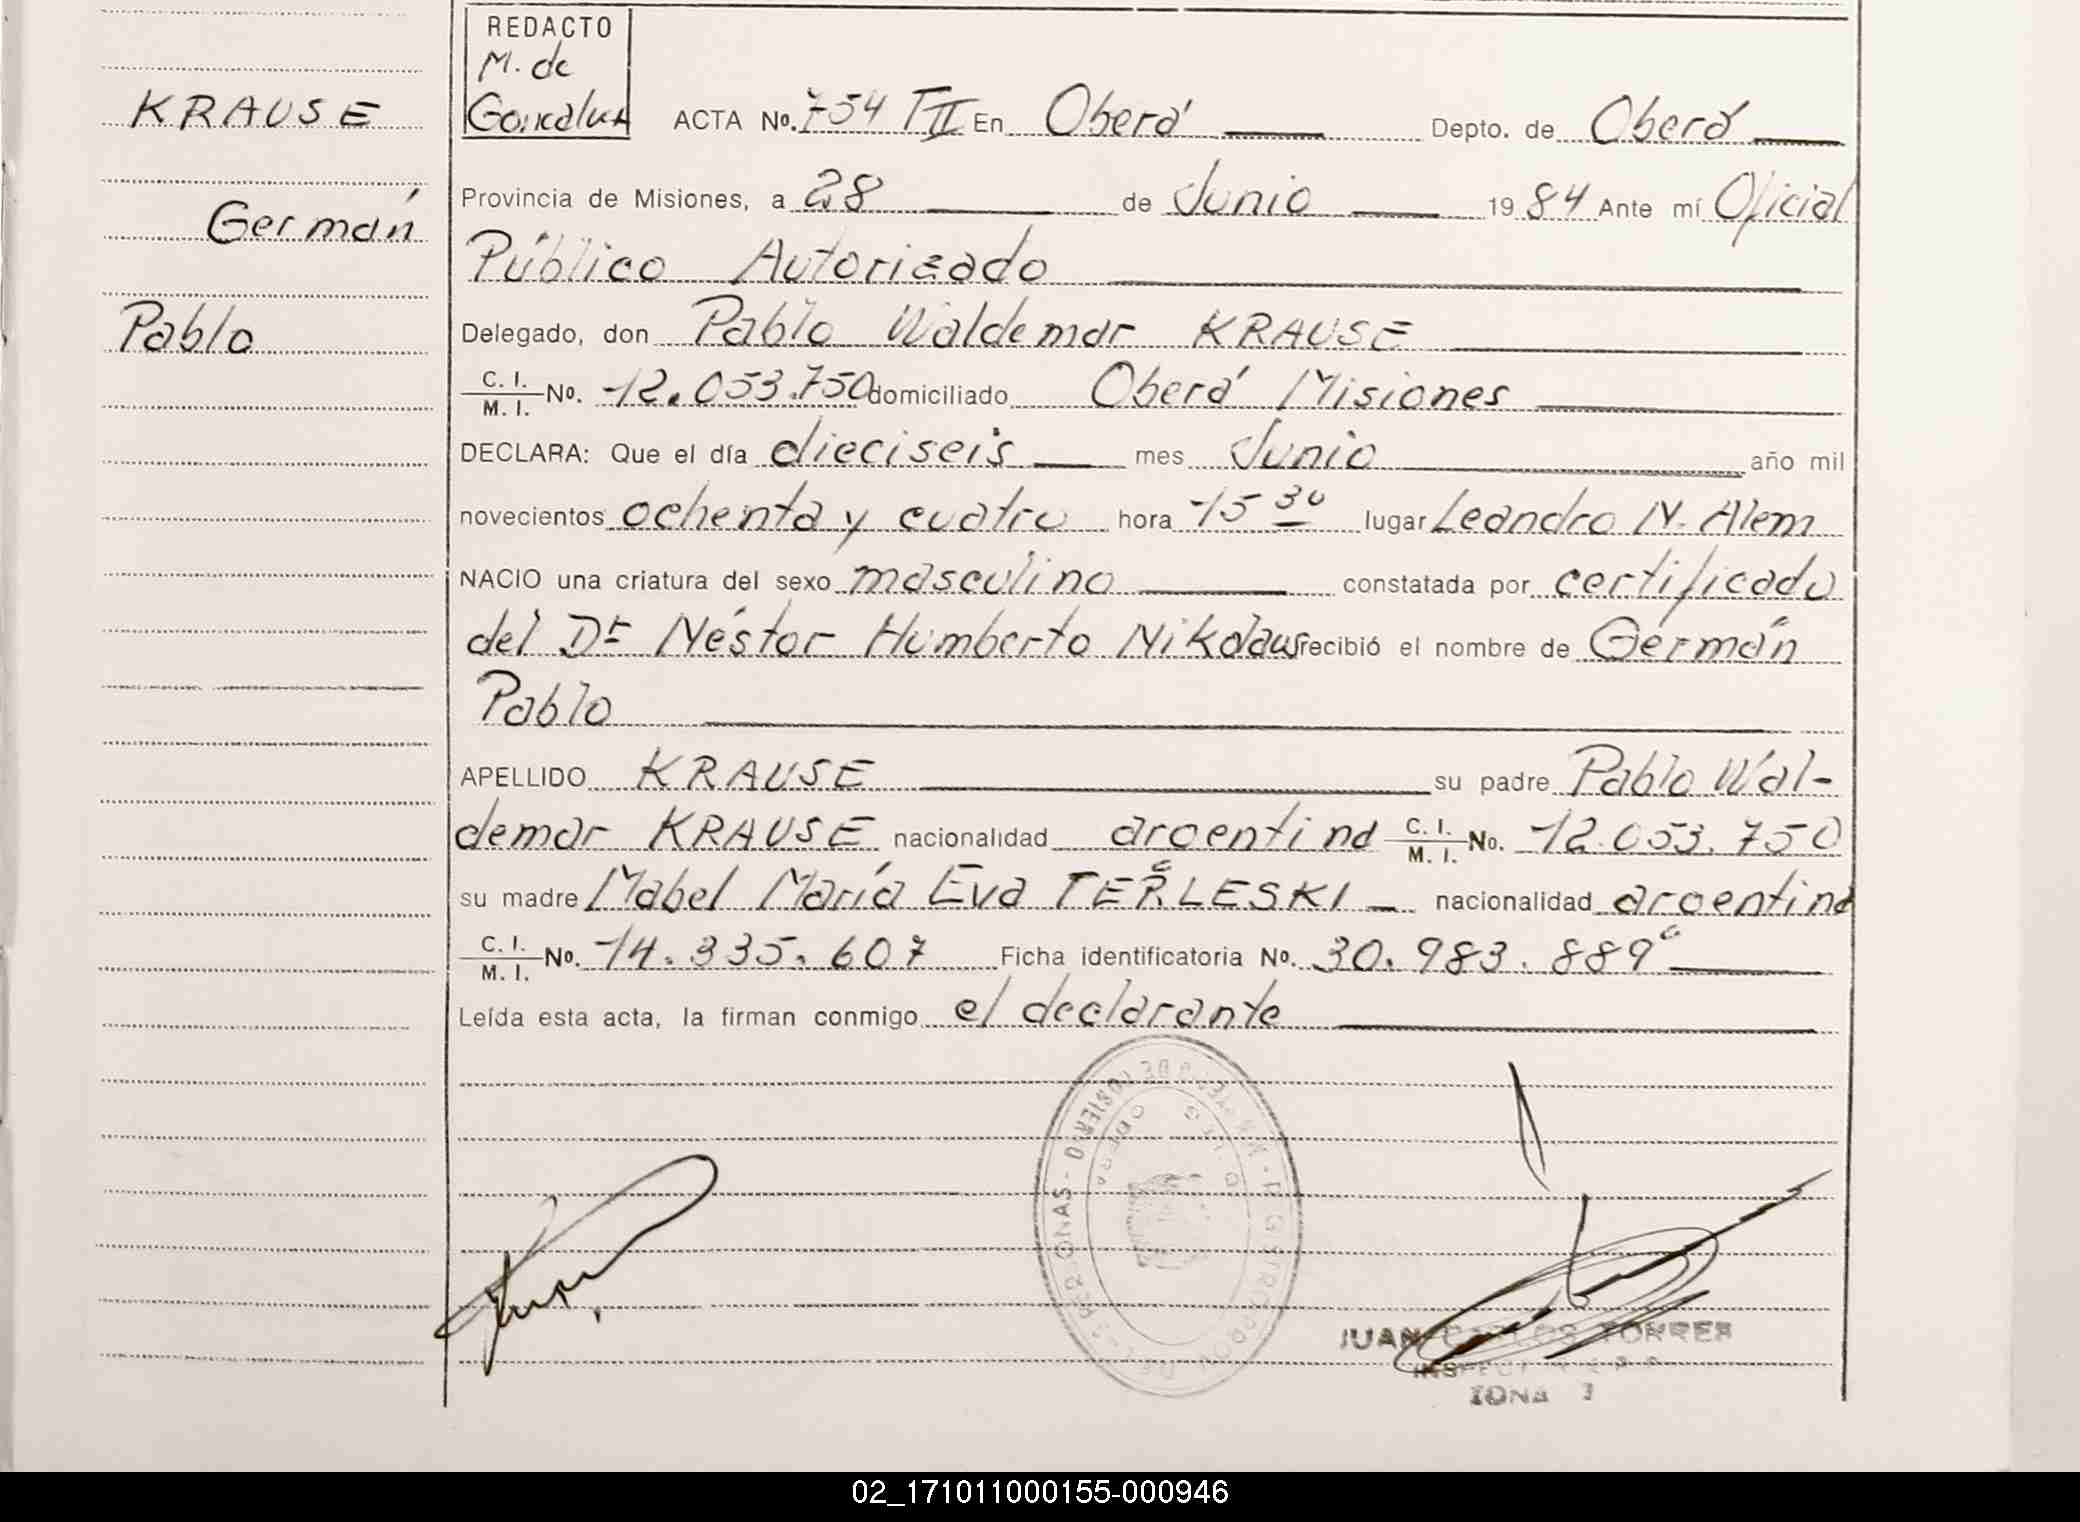 REDACTO
M. de
KRAUSE
ACTA No. 754 TII En Oberá Depto. de Oberá
Provincia de Misiones, a 28 de Junio 1984 Ante mí Oficial
Germán
Público Autorizado
Pablo
Delegado, don Pablo Waldemar KRAUSE
C. I. M. I. No. 12.053.750 domiciliado Oberá Misiones
DECLARA: Que el día dieciseis mes Junio año mil
novecientos ochenta y cuatro hora 15 30 lugar Leandro N. Alem
NACIO una criatura del sexo masculino constatada por certificado
del Dr Néstor Humberto Nikolaus recibió el nombre de Germán
Pablo
APELLIDO KRAUSE su padre Pablo Wal-
demar KRAUSE nacionalidad argentina C. I. M. I. No. 12.053.750
su madre Mabel María Eva TERLESKI nacionalidad argentina
C. I. M. I. No. 14.335.607 Ficha identificatoria No. 30.983.889
Leída esta acta, la firman conmigo el declarante
JUAN CARLOS TORRES
ZONA 3
02_171011000155-000946